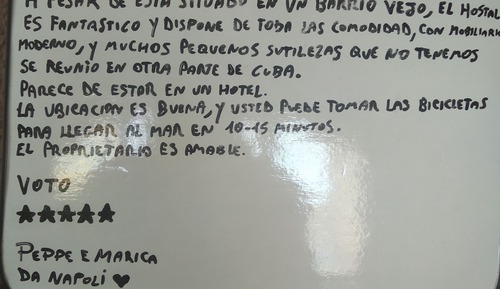 A PESAR DE ESTA SITUADO EN UN BARRIO VEJO, EL HOSTAL
ES FANTASTICO Y DISPONE DE TODA LAS COMODIDAD, CON MOBILIARIO
MODERNO, Y MUCHOS PEQUENOS SUTILEZAS QUE NO TENEMOS
SE REUNIO EN OTRA PARTE DE CUBA.
PARECE DE ESTOR EN UN HOTEL.
LA UBICACION ES BUENA, Y USTED PUEDE TOMAR LAS BICICLETAS
PARA LLEGAR AL MAR EN 10-15 MINUTOS.
EL PROPRIETARIO ES AMABLE.
VOTO
★★★★★
PEPPE E MARICA
DA NAPOLI ♥